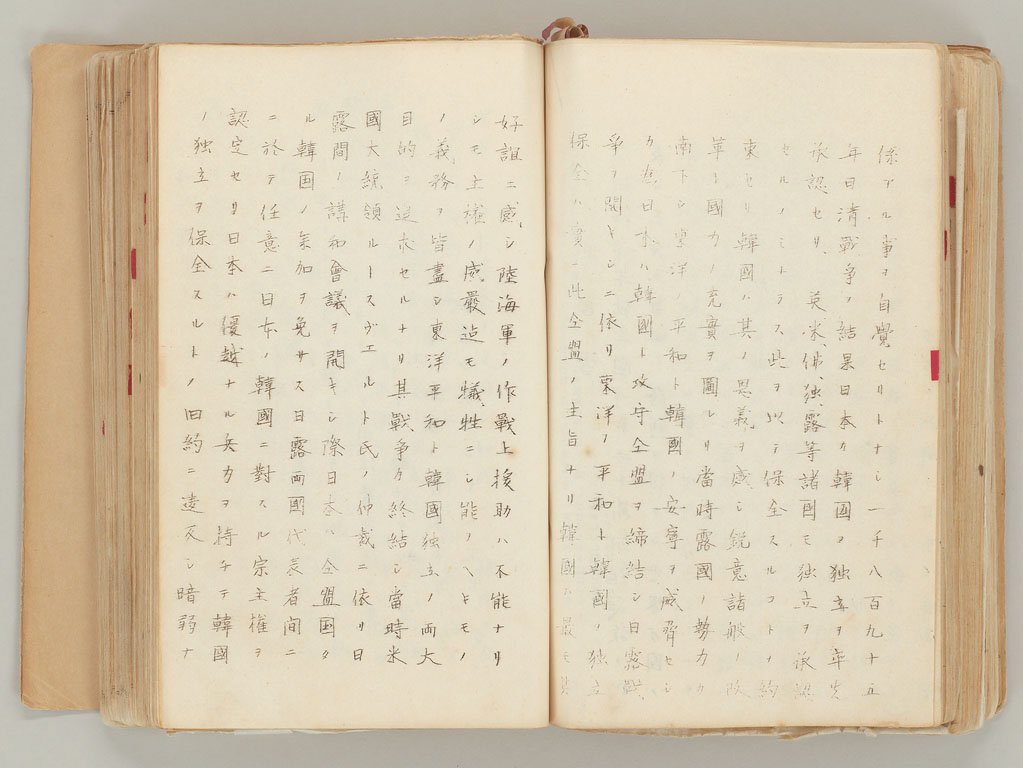 係アル事ヲ自覺セリトナシ一千八百九十五
年日清戰争ノ結果日本カ韓国ヲ独立ヲ率先
承認セリ、英、米、佛、独、露等諸国モ独立ヲ承認
セルノミトテス此ヲ以テ保全スルコトノ約
束セリ韓國ハ其ノ恩義ヲ感シ銳意諸般ノ改
革ト國力ノ充實ヲ圖レリ當時露國ノ勢力カ
南下シ東洋ノ平和ト韓國ノ安寧ヲ威脅セシ
カ為日本ハ韓國ト攻守仝盟ヲ締結シ日露戰
争ヲ開キシニ依リ東洋ノ平和ト韓國ノ独立
保全ハ實ニ此仝盟ノ主旨ナリ韓國ハ最モ其
好誼ニ感シ陸海軍ノ作戰上援助ハ不能ナリ
シモ主權ノ威嚴迠モ犠牲ニシ能ノヘキモノ
ノ義務ヲ皆盡シ東洋平和ト韓國独立ノ両大
目的ヲ追求セルナリ其戰争カ終結シ當時米
國大統領ルースヴエルト氏ノ仲裁ニ依リ日
露間ノ講和會議ヲ開キシ際日本ハ仝盟国タ
ル韓国ノ参加ヲ免サス日露両國代表者間ニ
ニ於テ任意ニ日本ノ韓國ニ對スル宗主權ヲ
認定セリ日本ハ優越ナル兵力ヲ持チテ韓國
ノ独立ヲ保全スルトノ旧約ニ違反シ暗弱ナ